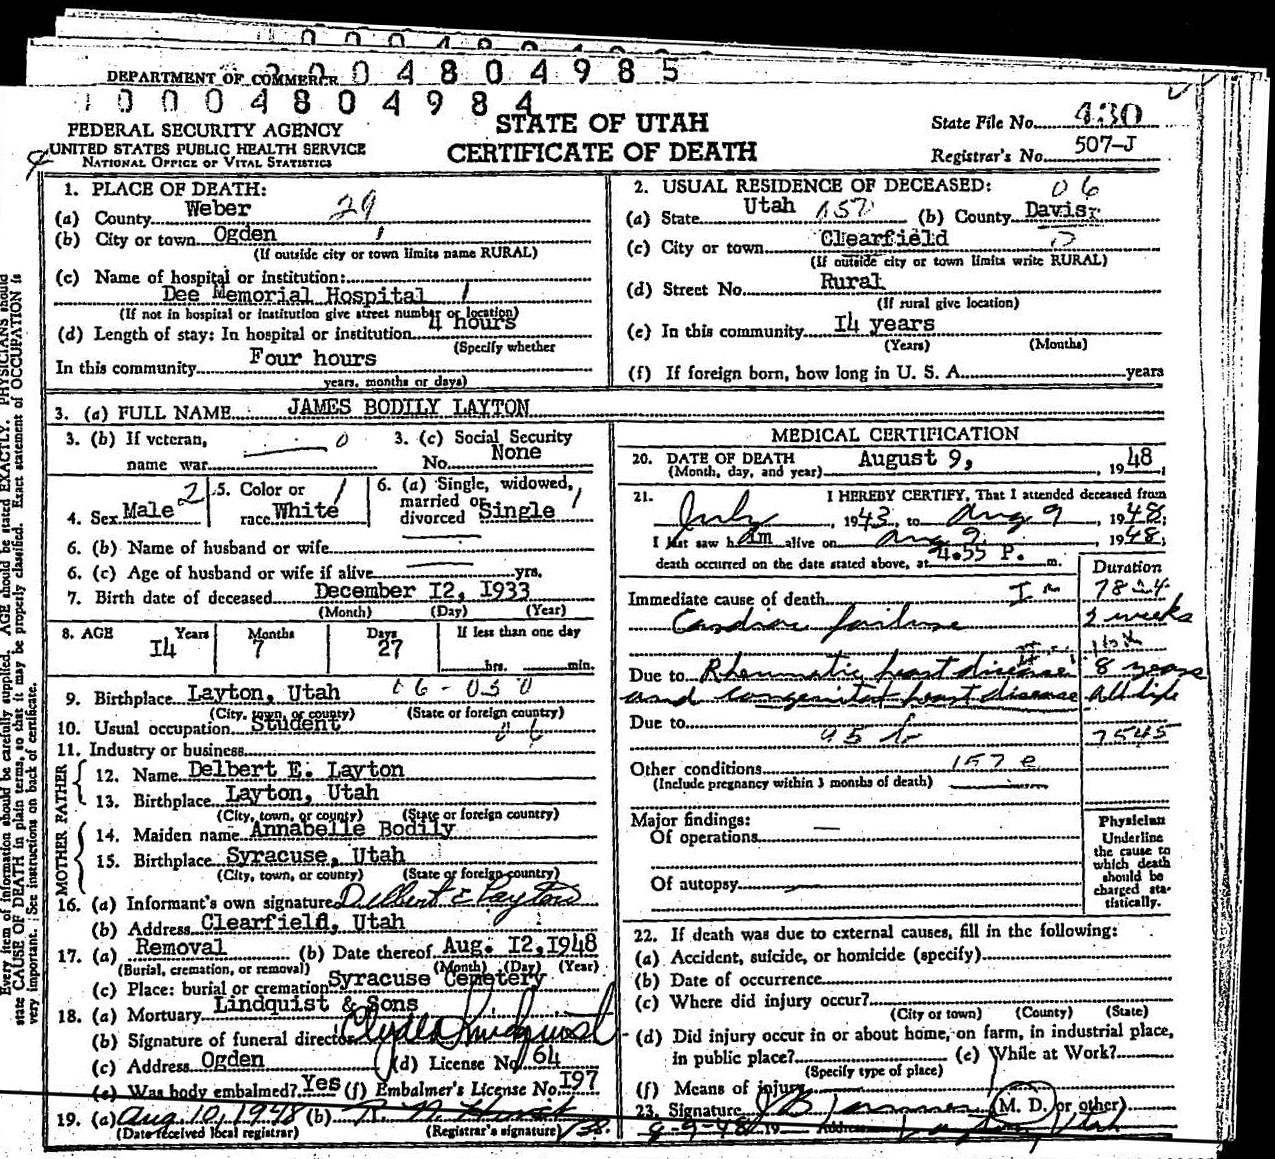 DEPARTMENT OF COMMERCE 0004804985
10004804984
FEDERAL SECURITY AGENCY
UNITED STATES PUBLIC HEALTH SERVICE
NATIONAL OFFICE OF VITAL STATISTICS
STATE OF UTAH
CERTIFICATE OF DEATH
State File No. 430
Registrar's No. 507-J
1. PLACE OF DEATH:
(a) County Weber 29
(b) City or town Ogden 1
(If outside city or town limits name RURAL)
(c) Name of hospital or institution:
Dee Memorial Hospital 1
(If not in hospital or institution give street number or location)
(d) Length of stay: In hospital or institution 4 hours
(Specify whether
In this community Four hours
years, months or days)
2. USUAL RESIDENCE OF DECEASED: 06
(a) State Utah 157 (b) County Davis
(c) City or town Clearfield 0
(If outside city or town limits write RURAL)
(d) Street No. Rural
(If rural give location)
(e) In this community I4 years
(Years) (Months)
(f) If foreign born, how long in U. S. A. years
3. (a) FULL NAME JAMES BODILY LAYTON
3. (b) If veteran, 0
name war
3. (c) Social Security
No. None
4. Sex Male 2
5. Color or 1
race White
6. (a) Single, widowed,
married or
divorced Single 1
6. (b) Name of husband or wife
6. (c) Age of husband or wife if alive yrs.
7. Birth date of deceased December I2, I933
(Month) (Day) (Year)
8. AGE Years Months Days If less than one day
I4 7 27 hrs. min.
9. Birthplace Layton, Utah 06-030
(City, town, or county) (State or foreign country)
10. Usual occupation Student 06
11. Industry or business
FATHER
12. Name Delbert E. Layton
13. Birthplace Layton, Utah
(City, town, or county) (State or foreign country)
MOTHER
14. Maiden name Annabelle Bodily
15. Birthplace Syracuse, Utah
(City, town, or county) (State or foreign country)
16. (a) Informant's own signature Delbert E Layton
(b) Address Clearfield, Utah
17. (a) Removal (b) Date thereof Aug. I2, I948
(Burial, cremation, or removal) (Month) (Day) (Year)
(c) Place: burial or cremation Syracuse Cemetery
18. (a) Mortuary Lindquist & Sons
(b) Signature of funeral director Clyde Lindquist
(c) Address Ogden (d) License No. 164
(e) Was body embalmed? Yes (f) Embalmer's License No. I97
19. (a) Aug 10, 1948 (b)
(Date received local registrar) (Registrar's signature)
MEDICAL CERTIFICATION
20. DATE OF DEATH August 9, , 1948
(Month, day, and year)
21. I HEREBY CERTIFY, That I attended deceased from
July , 1943, to Aug 9 , 1948;
I last saw h im alive on Aug 9 , 1948;
death occurred on the date stated above, at 4.55 P. m.
Duration
Immediate cause of death
Cardiac failure 2 weeks
Due to Rheumatic heart disease 8 years
and congenital heart disease All life
Due to 95 b 7545
Other conditions 157 e
(Include pregnancy within 3 months of death)
Major findings:
Of operations
Of autopsy
Physician
Underline
the cause to
which death
should be
charged sta-
tistically.
22. If death was due to external causes, fill in the following:
(a) Accident, suicide, or homicide (specify)
(b) Date of occurrence
(c) Where did injury occur?
(City or town) (County) (State)
(d) Did injury occur in or about home, on farm, in industrial place,
in public place? (e) While at Work?
(Specify type of place)
(f) Means of injury
23. Signature (M. D. or other)
8-9-48 19 Address Layton, Utah
Every item of information should be carefully supplied. AGE should be stated EXACTLY. PHYSICIANS should
state CAUSE OF DEATH in plain terms, so that it may be properly classified. Exact statement of OCCUPATION is
very important. See instructions on back of certificate.